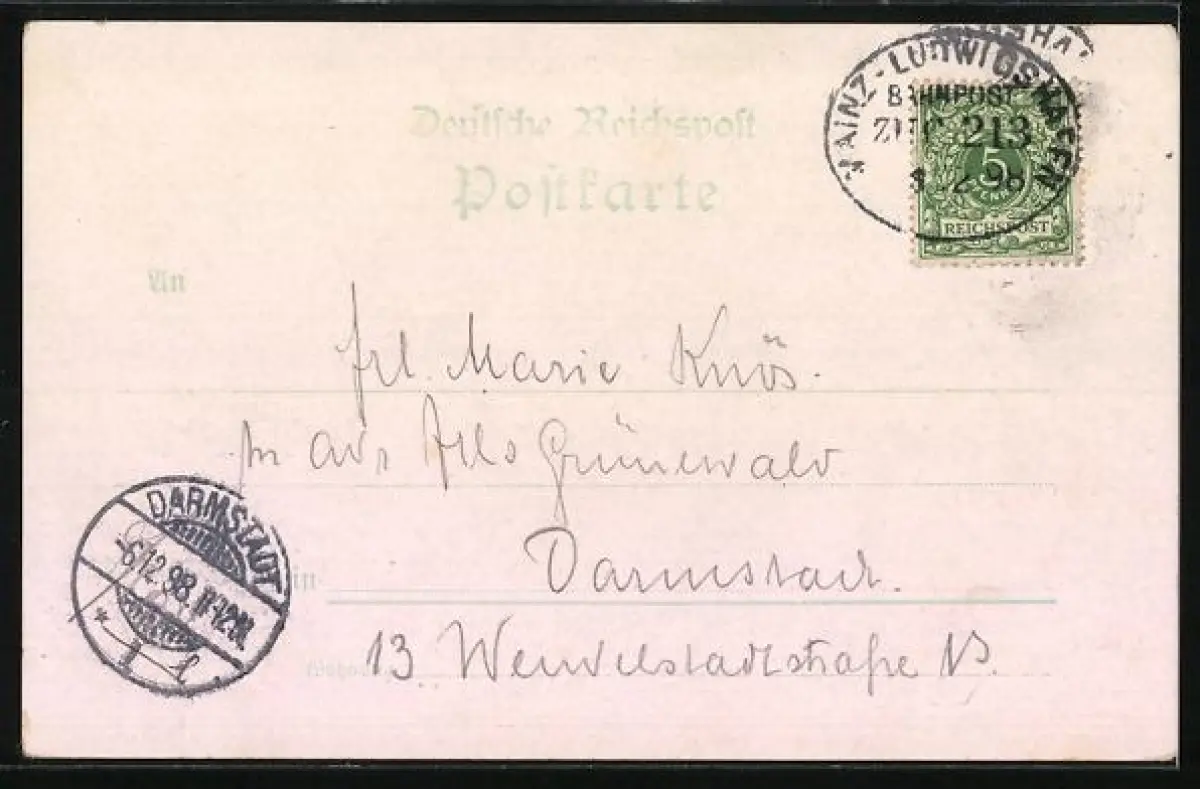 MAINZ-LUDWIGSHAFEN
BAHNPOST
ZUG 213
12 98
5
PFENNIG
REICHSPOST
Deutsche Reichspost
Postkarte
An
Frl. Marie Knös.
adr Frls Grünewald
in
Darmstadt.
13. Wendelstadtstraße 13.
DARMSTADT
-6.12.98. 11-12.